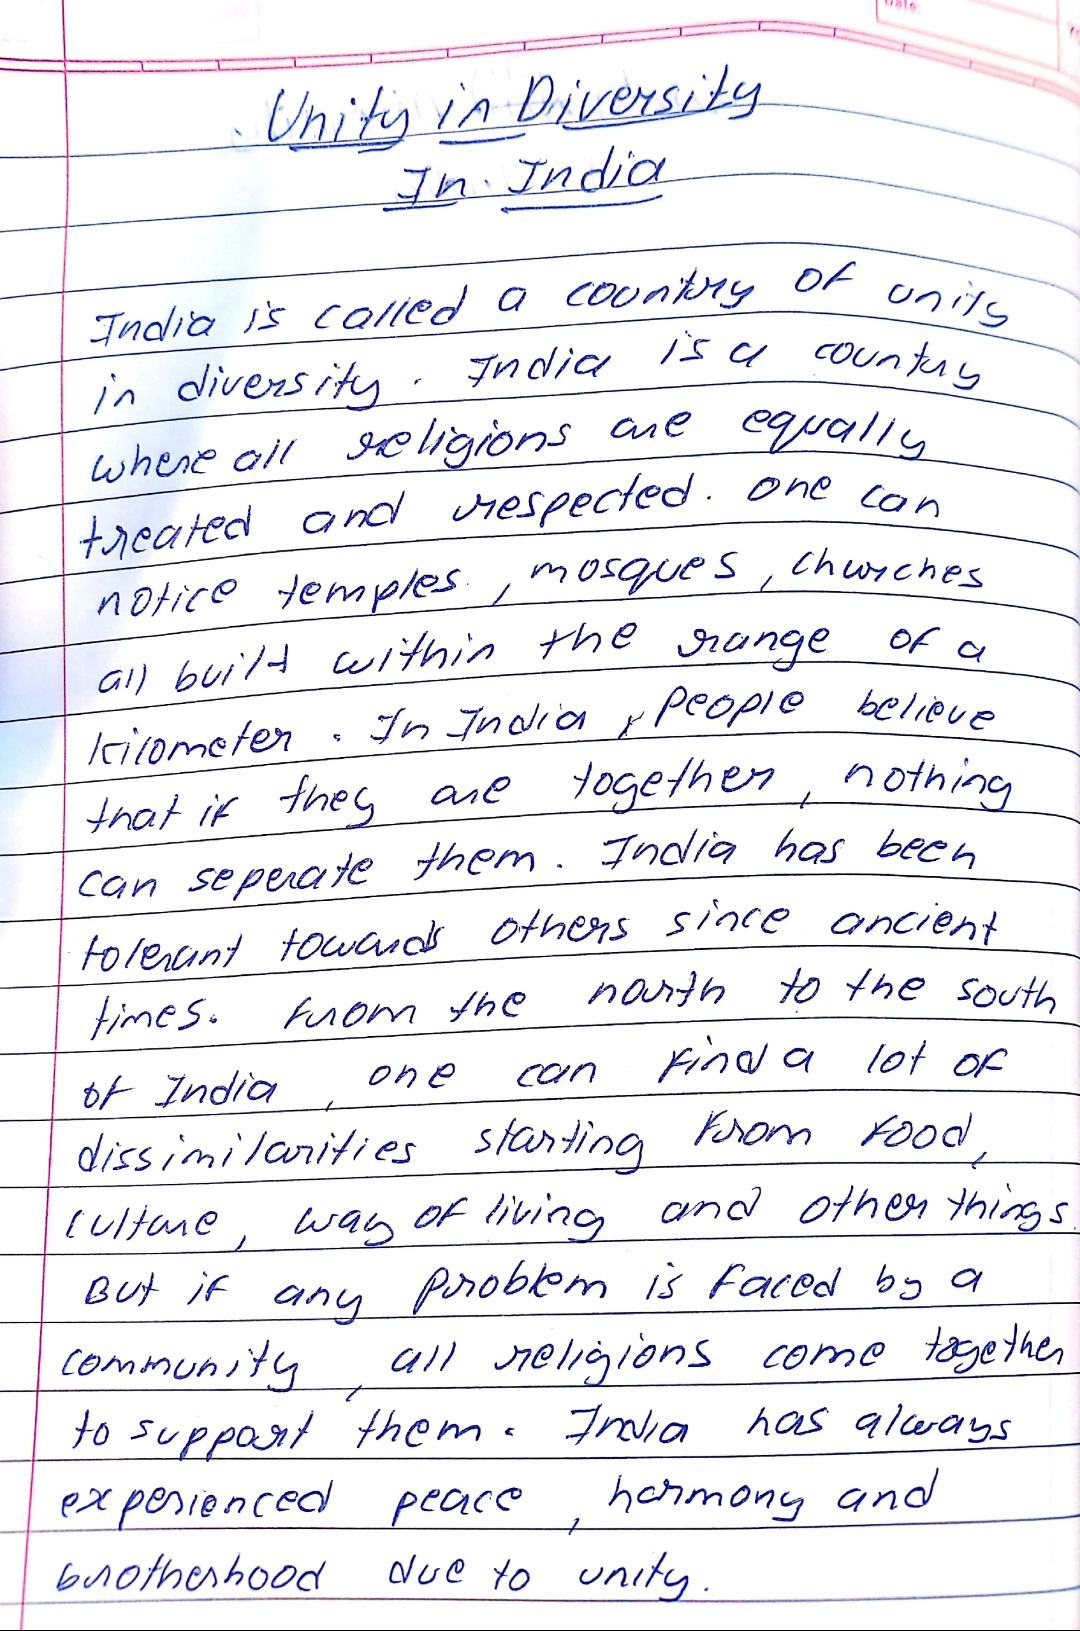 Date:
Unity in Diversity
In India
India is called a country of unity
in diversity. India is a country
where all religions are equally
treated and respected. One can
notice temples, mosques, churches
all built within the range of a
kilometer. In India, people believe
that if they are together, nothing
can seperate them. India has been
tolerant towards others since ancient
times. From the north to the south
of India, one can find a lot of
dissimilarities starting from food,
culture, way of living and other things.
But if any problem is faced by a
community, all religions come together
to support them. India has always
experienced peace, harmony and
brotherhood due to unity.